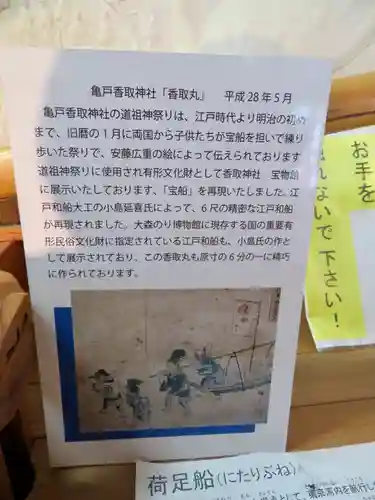 亀戸香取神社「香取丸」　平成28年5月
亀戸香取神社の道祖神祭りは、江戸時代より明治の初め
まで、旧暦の１月に両国から子供たちが宝船を担いで練り
歩いた祭りで、安藤広重の絵によって伝えられております
道祖神祭りに使用され有形文化財として香取神社　宝物館
に展示いたしております、「宝船」を再現いたしました。江
戸和船大工の小島延喜氏によって、６尺の精密な江戸和船
が再現されました。大森のり博物館に現存する国の重要有
形民俗文化財に指定されている江戸和船も、小島氏の作と
して展示されており、この香取丸も原寸の６分の一に精巧
に作られております。
お手を
れないで下さい！
荷足船(にたりぶね)